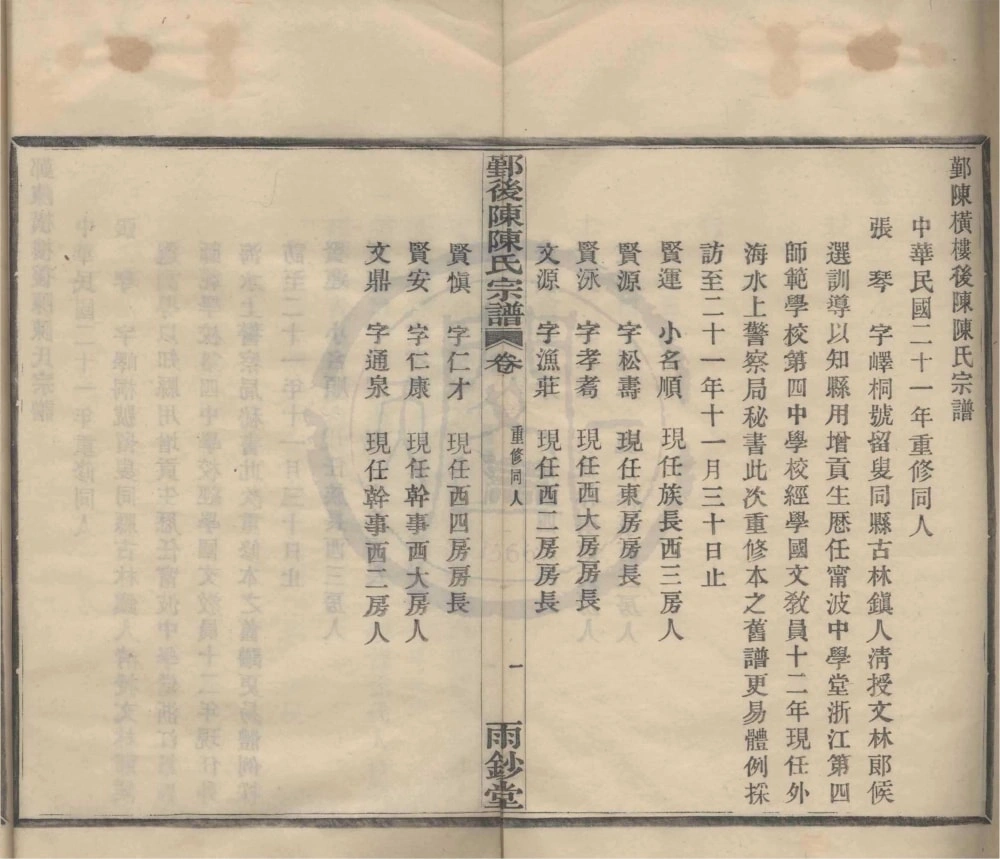 鄞陳橫樓後陳陳氏宗譜
中華民國二十一年重修同人
張琴 字嶧桐號留叟同縣古林鎮人清授文林郎候
選訓導以知縣用增貢生歷任甯波中學堂浙江第四
師範學校第四中學校經學國文敎員十二年現任外
海水上警察局秘書此次重修本之舊譜更易體例採
訪至二十一年十一月三十日止
賢運 小名順 現任族長西三房人
賢源 字松壽 現任東房房長
賢泳 字孝耉 現任西大房房長
文源 字漁莊 現任西二房房長
鄞後陳陳氏宗譜 卷 重修同人 一 雨鈔堂
賢愼 字仁才 現任西四房房長
賢安 字仁康 現任幹事西大房人
文鼎 字通泉 現任幹事西二房人